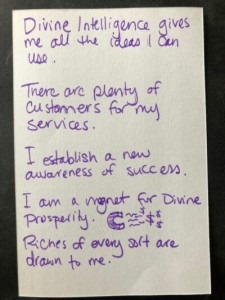 Divine Intelligence gives
me all the ideas I can
use.
There are plenty of
customers for my
services.
I establish a new
awareness of success.
I am a magnet for Divine
Prosperity. $ $ $
Riches of every sort are
drawn to me.